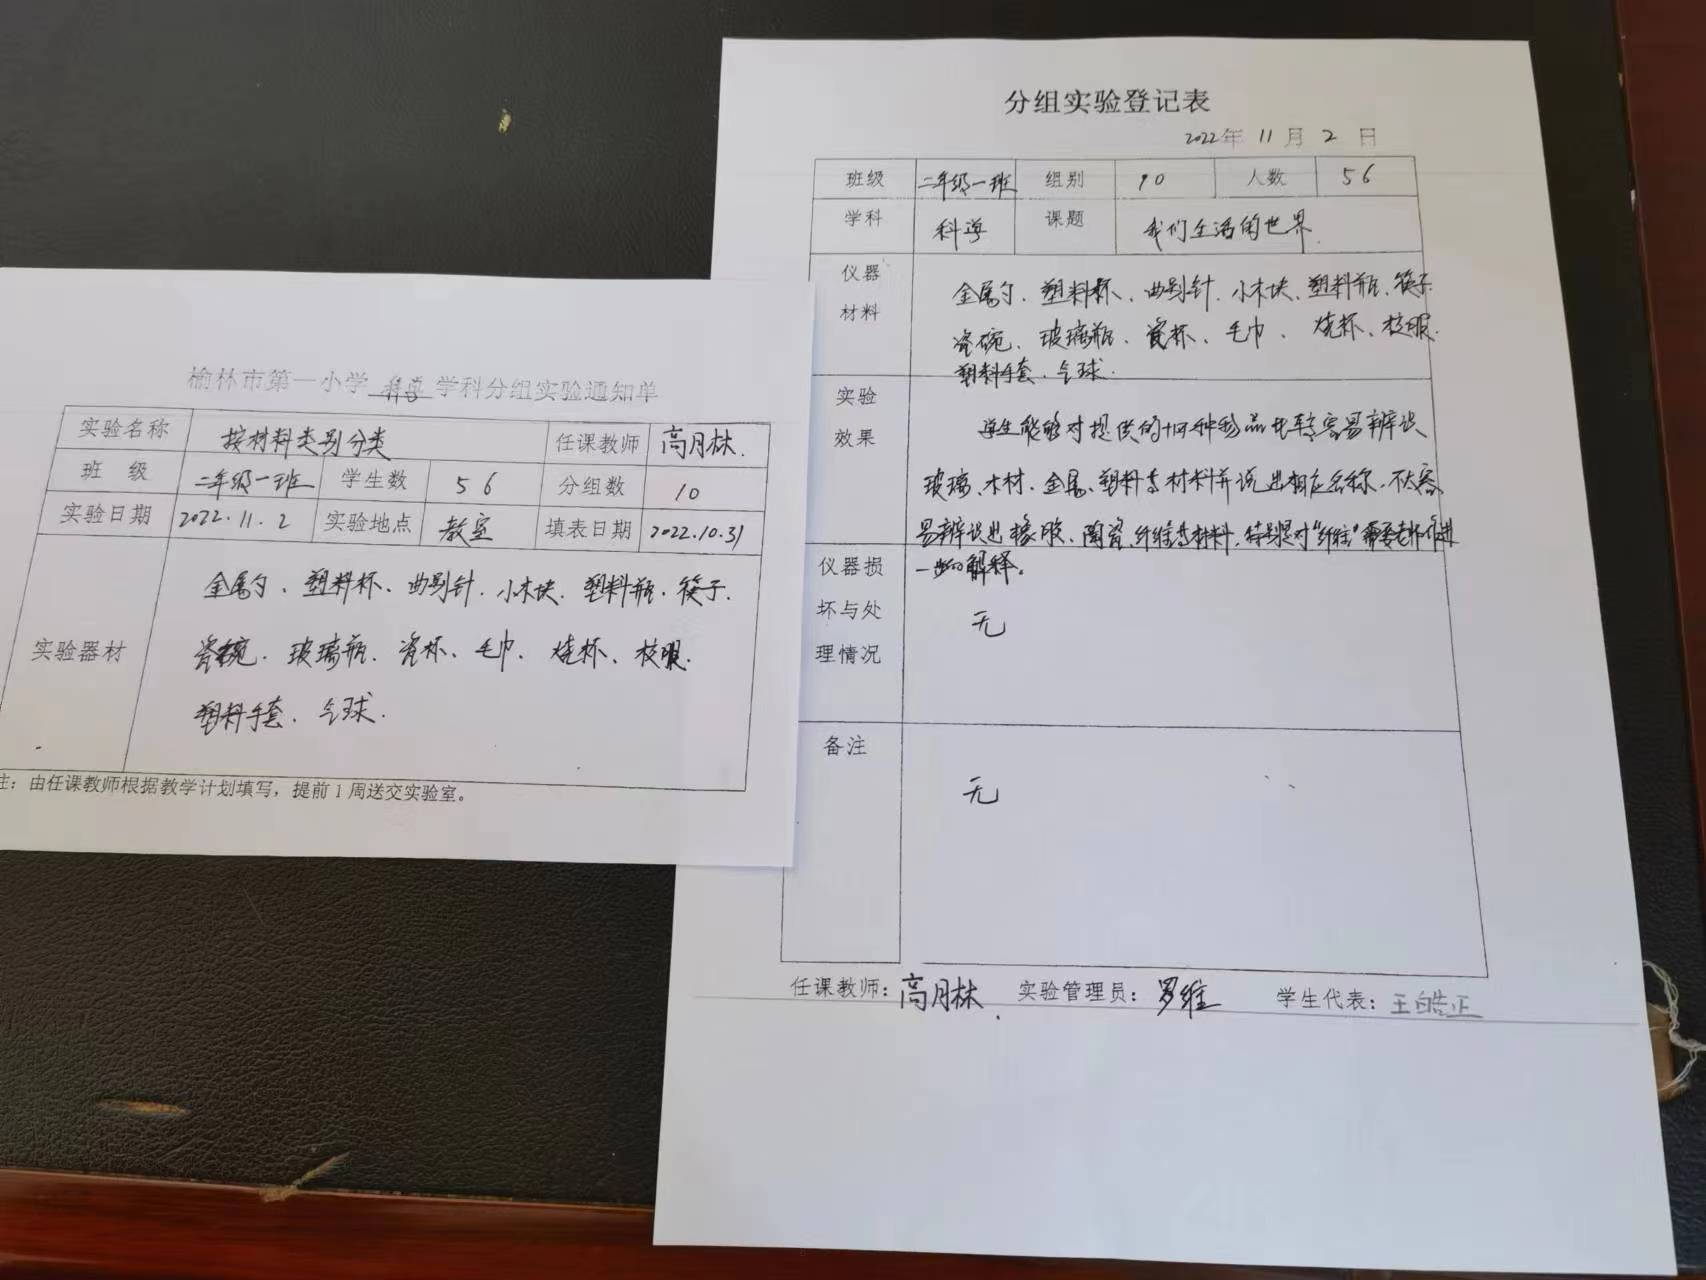 榆林市第一小学 科学 学科分组实验通知单
实验名称 按材料类别分类 任课教师 高月林.
班 级 二年级一班 学生数 56 分组数 10
实验日期 2022.11.2 实验地点 教室 填表日期 2022.10.31
实验器材
金属勺、塑料杯、曲别针、小木块、塑料瓶、筷子、
瓷碗、玻璃瓶、瓷杯、毛巾、烧杯、校服、
塑料手套、气球.
注：由任课教师根据教学计划填写，提前1周送交实验室。
分组实验登记表
2022年 11 月 2 日
班级 二年级一班 组别 10 人数 56
学科 科学 课题 我们生活的世界.
仪器
材料
金属勺、塑料杯、曲别针、小木块、塑料瓶、筷子
瓷碗、玻璃瓶、瓷杯、毛巾、烧杯、校服.
塑料手套、气球.
实验
效果
学生能够对提供的十四种物品比较容易辨识
玻璃、木材、金属、塑料等材料并说出相应名称，不太容
易辨识出橡胶、陶瓷、纤维等材料，特别是对“纤维”需要老师作进
一步的解释。
仪器损
坏与处
理情况
无
备注
无
任课教师：高月林. 实验管理员：罗维 学生代表：王皓正